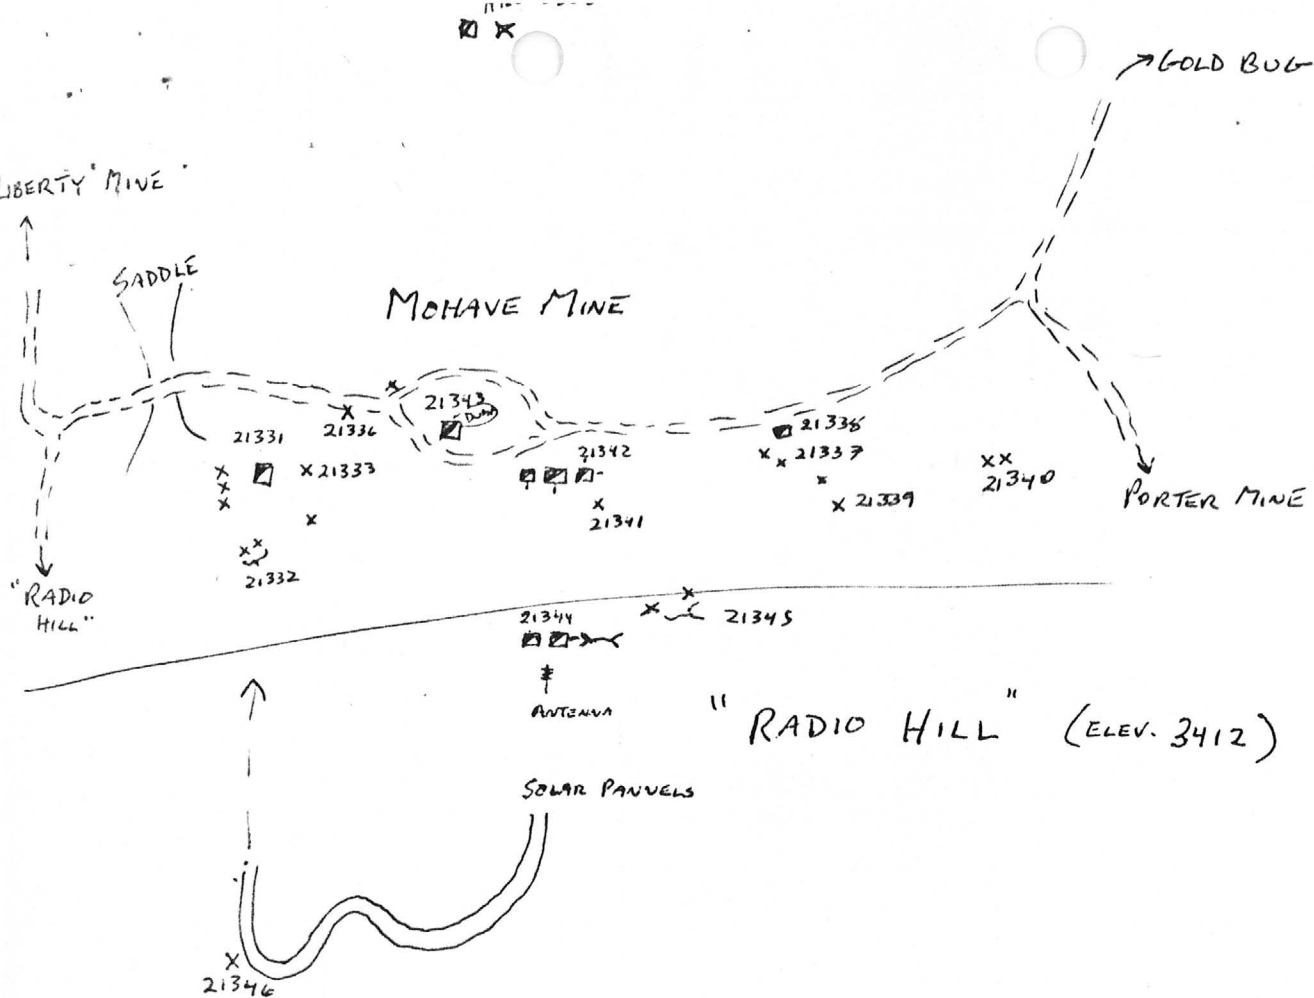 GOLD BUG
LIBERTY" MINE
SADDLE
MOHAVE MINE
21343
DUMP
21336
21331
21333
21342
21338
21337
21341
21339
21340
PORTER MINE
21332
"RADIO
HILL"
21344
21345
ANTENNA
"RADIO HILL" (ELEV. 3412)
SOLAR PANNELS
21346